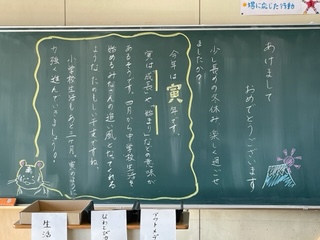 場に応じた行動
あけまして
おめでとうございます
少し長めの冬休み、楽しく過ごせ
ましたか？
今年は寅年です。
寅は「成長」や「始まり」などの意味が
あるそうです。四月から中学校生活を
始めるみなさんの追い風となってくれる
ような、たのもしい干支ですね。
小学校生活もあと三ヶ月。寅のように
力強く進んでいきましょう！
生活